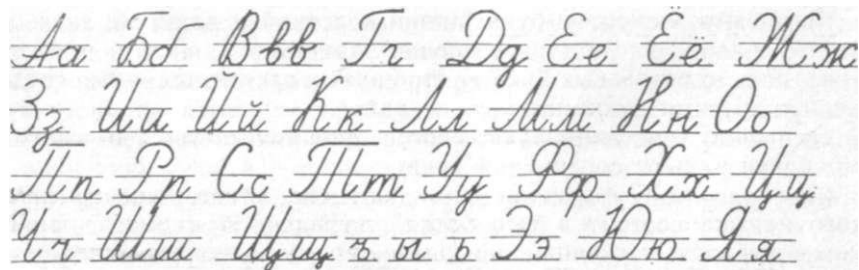 Аа Бб Ввв Гг Дд Ее Ёё Жж
Зз Ии Йй Кк Лл Мм Нн Оо
Пп Рр Сс Тт Уу Фф Хх Цц
Чч Шш Щщ ъ ы ь Ээ Юю Яя